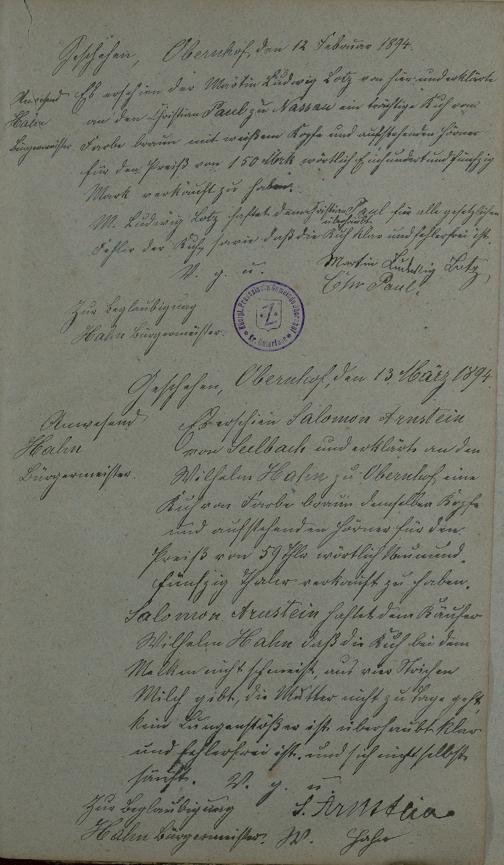 Geschehen, Obernhof, den 12 Februar 1894.
Anwesend
Hahn
Bürgermeister
Es erschien der Martin Ludwig Lotz von hier und erklärte
an den Christian Paul zu Nassau ein trächtige Kuh von
Farbe braun mit weißem Kopfe und aufstehenden Hörner
für den Preiß von 150 Mark wörtlich Einhundertundfünfzig
Mark verkauft zu haben.
M. Ludwig Lotz haftet dem Christian Paul für alle gesetzlichen
Fehler der Kuh, sowie daß die Kuh überhaubt klar und fehlerfrei ist.
V. g. u.
Martin Ludwig Lotz,
Chr Paul.
Zur Beglaubigung
Hahn Bürgermeister.
Geschehen, Obernhof, den 13, März 1894
Anwesend
Hahn
Bürgermeister.
Es erschien Salomon Arnstein
von Seelbach und erklärte an den
Wilhelm Hahn zu Obernhof eine
Kuh von Farbe braun demselben Kopfe
und aufstehenden Hörner für den
Preiß von 59 Thlr wörtlich Neunund-
fünfzig Thaler verkauft zu haben.
Salomon Arnstein haftet dem Käufer
Wilhelm Hahn daß die Kuh bei dem
Melken nicht schmeist, aus vier Strichen
Milch gibt, die Mutter nicht zu Tage geht,
kein Lungenstößer ist überhaubt klar
und fehlerfrei ist, und sich nicht selbst
säuft. V. g. u
Zur Beglaubigung
S. Arnstein
Hahn Bürgermeister. W. Hahn